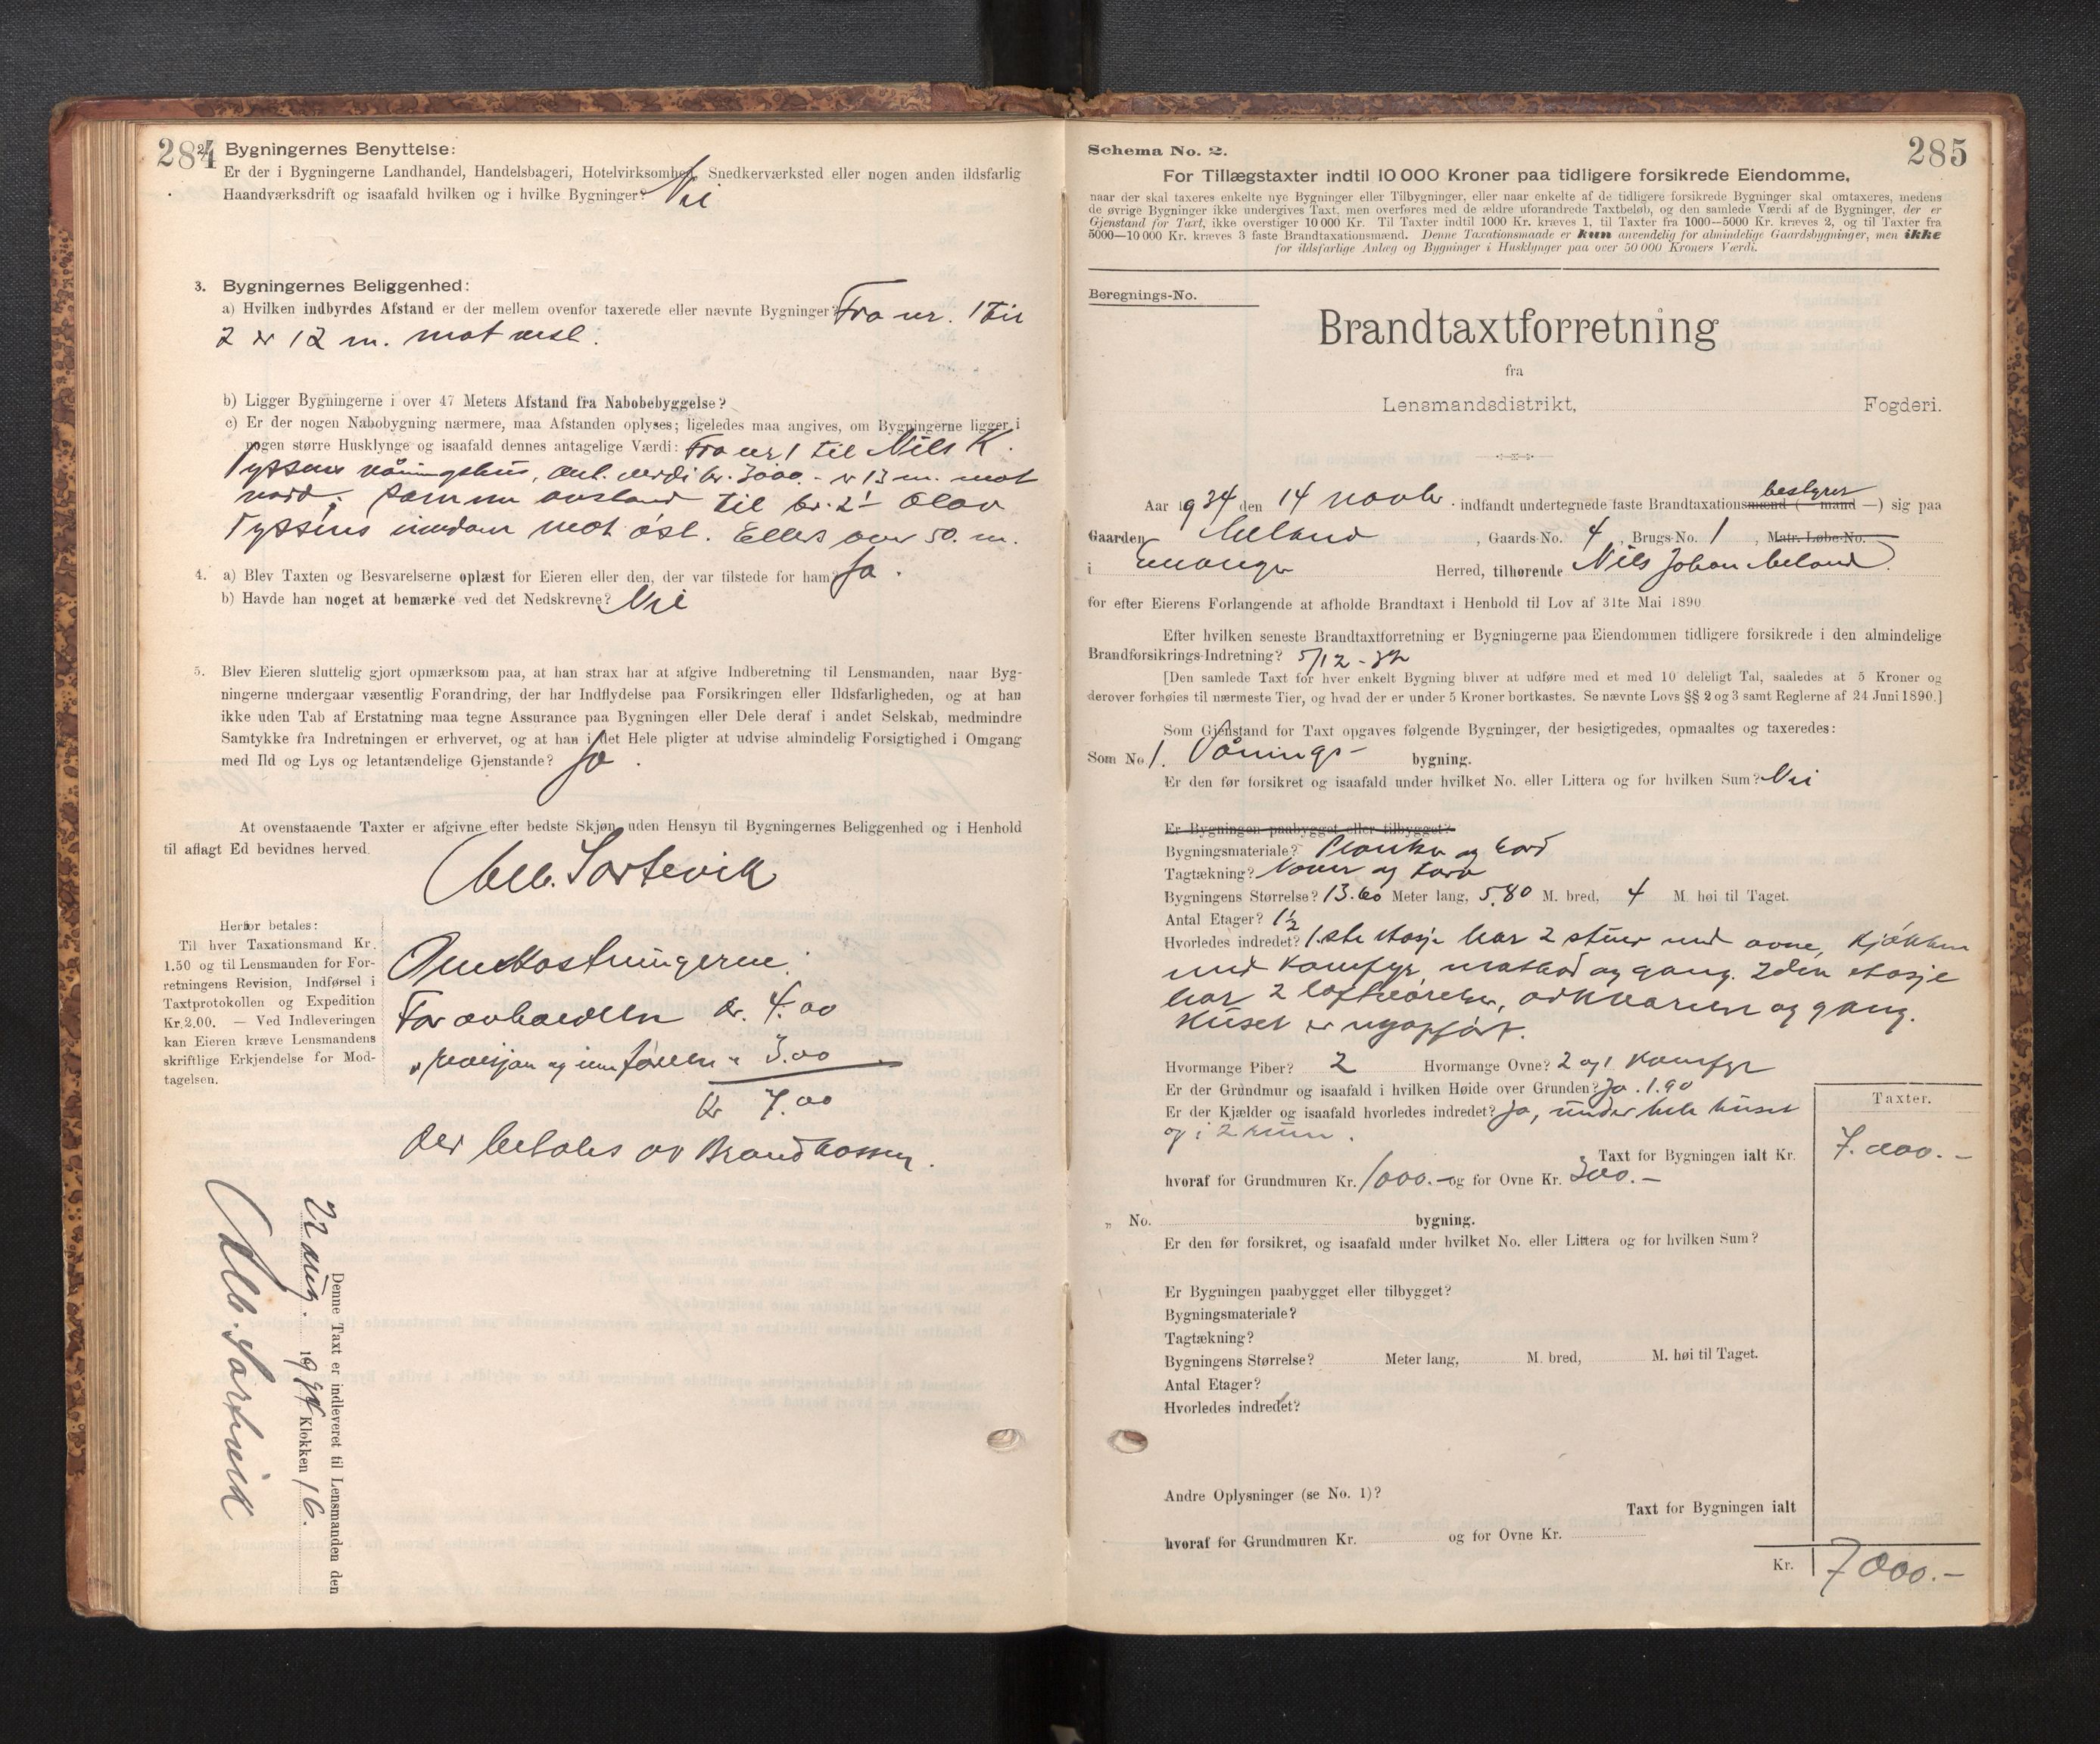 284
2. Bygningernes Benyttelse:
Er der i Bygningerne Landhandel, Handelsbageri, Hotelvirksomhed, Snedkerværksted eller nogen anden ildsfarlig
Haandværksdrift og isaafald hvilken og i hvilke Bygninger? Nei
3. Bygningernes Beliggenhed:
a) Hvilken indbyrdes Afstand er der mellem ovenfor taxerede eller nævnte Bygninger? Fra nr. 1 til
2 er 12 m. mot vest.
b) Ligger Bygningerne i over 47 Meters Afstand fra Nabobebyggelse?
c) Er der nogen Nabobygning nærmere, maa Afstanden oplyses; ligeledes maa angives, om Bygningerne ligger i
nogen større Husklynge og isaafald dennes antagelige Værdi: Fra nr 1 til Nils K.
Tyssens våningshus, ant. verdi kr. 3000.- er 13 m. mot
nord. Samme avstand til br. 2 - Olav
Tyssens mot øst. Ellers over 50. m.
4. a) Blev Taxten og Besvarelserne oplæst for Eieren eller den, der var tilstede for ham? Ja.
b) Havde han noget at bemærke ved det Nedskrevne? Nei
5. Blev Eieren sluttelig gjort opmærksom paa, at han strax har at afgive Indberetning til Lensmanden, naar Byg-
ningerne undergaar væsentlig Forandring, der har Indflydelse paa Forsikringen eller Ildsfarligheden, og at han
ikke uden Tab af Erstatning maa tegne Assurance paa Bygningen eller Dele deraf i andet Selskab, medmindre
Samtykke fra Indretningen er erhvervet, og at han i det Hele pligter at udvise almindelig Forsigtighed i Omgang
med Ild og Lys og letantændelige Gjenstande? Ja.
At ovenstaaende Taxter er afgivne efter bedste Skjøn uden Hensyn til Bygningernes Beliggenhed og i Henhold
til aflagt Ed bevidnes herved.
Sortevik
Herfor betales:
Til hver Taxationsmand Kr.
1.50 og til Lensmanden for For-
retningens Revision, Indførsel i
Taxtprotokollen og Expedition
Kr. 2.00. — Ved Indleveringen
kan Eieren kræve Lensmandens
skriftlige Erkjendelse for Mod-
tagelsen.
Omkostningerne:
For avholdelse kr. 4.00
" revisjon og innførsel " 3.00
Kr 7.00
der betales av Brandkassen.
Denne Taxt er indleveret til Lensmanden den
22 aug. 1934 Klokken 16.
Sortevik
285
Schema No. 2.
For Tillægstaxter indtil 10 000 Kroner paa tidligere forsikrede Eiendomme,
naar der skal taxeres enkelte nye Bygninger eller Tilbygninger, eller naar enkelte af de tidligere forsikrede Bygninger skal omtaxeres, medens
de øvrige Bygninger ikke undergives Taxt, men overføres med de ældre uforandrede Taxtbeløb, og den samlede Værdi af de Bygninger, der er
Gjenstand for Taxt, ikke overstiger 10 000 Kr. Til Taxter indtil 1000 Kr. kræves 1, til Taxter fra 1000—5000 Kr. kræves 2, og til Taxter fra
5000—10 000 Kr. kræves 3 faste Brandtaxationsmænd. Denne Taxationsmaade er kun anvendelig for almindelige Gaardsbygninger, men ikke
for ildsfarlige Anlæg og Bygninger i Husklynger paa over 50 000 Kroners Værdi.
Beregnings-No.
Brandtaxtforretning
fra
Lensmandsdistrikt, Fogderi.
Aar 1934 den 14 novbr. indfandt undertegnede faste Brandtaxationsmænd (— mand —) bestyrer sig paa
Gaarden Meland, Gaards-No. 4, Brugs-No. 1, Matr. Løbe-No.
i Herred, tilhørende Nils Johan Meland.
for efter Eierens Forlangende at afholde Brandtaxt i Henhold til Lov af 31te Mai 1890.
Efter hvilken seneste Brandtaxtforretning er Bygningerne paa Eiendommen tidligere forsikrede i den almindelige
Brandforsikrings-Indretning? 5/12 - 32
[Den samlede Taxt for hver enkelt Bygning bliver at udføre med et med 10 deleligt Tal, saaledes at 5 Kroner og
derover forhøies til nærmeste Tier, og hvad der er under 5 Kroner bortkastes. Se nævnte Lovs §§ 2 og 3 samt Reglerne af 24 Juni 1890.]
Som Gjenstand for Taxt opgaves følgende Bygninger, der besigtigedes, opmaaltes og taxeredes:
Som No. 1. Vånings- bygning.
Er den før forsikret og isaafald under hvilket No. eller Littera og for hvilken Sum? Nei
Er Bygningen paabygget eller tilbygget?
Bygningsmateriale? Planker og bord
Tagtækning? Never og torv
Bygningens Størrelse? 13.60 Meter lang, 5.80 M. bred, 4 M. høi til Taget.
Antal Etager? 1½
Hvorledes indredet? 1.ste etasje har 2 stuer med ovne, kjøkken
med komfyr, matbod og gang. 2den etasje
har 2 loftværelser, og gang.
Huset er nyoppført.
Hvormange Piber? 2 Hvormange Ovne? 2 og 1 komfyr
Er der Grundmur og isaafald i hvilken Høide over Grunden? Ja. 1.90
Er der Kjælder og isaafald hvorledes indredet? Ja, under hele huset
og i 2 rum.
Taxter.
Taxt for Bygningen ialt Kr. 7.000.-
hvoraf for Grundmuren Kr. 1000.- og for Ovne Kr. 300.-
„ No. bygning.
Er den før forsikret, og isaafald under hvilket No. eller Littera og for hvilken Sum?
Er Bygningen paabygget eller tilbygget?
Bygningsmateriale?
Tagtækning?
Bygningens Størrelse? Meter lang, M. bred, M. høi til Taget.
Antal Etager?
Hvorledes indredet?
Andre Oplysninger (se No. 1)?
Taxt for Bygningen ialt
hvoraf for Grundmuren Kr. og for Ovne Kr.
Kr. 7000.-